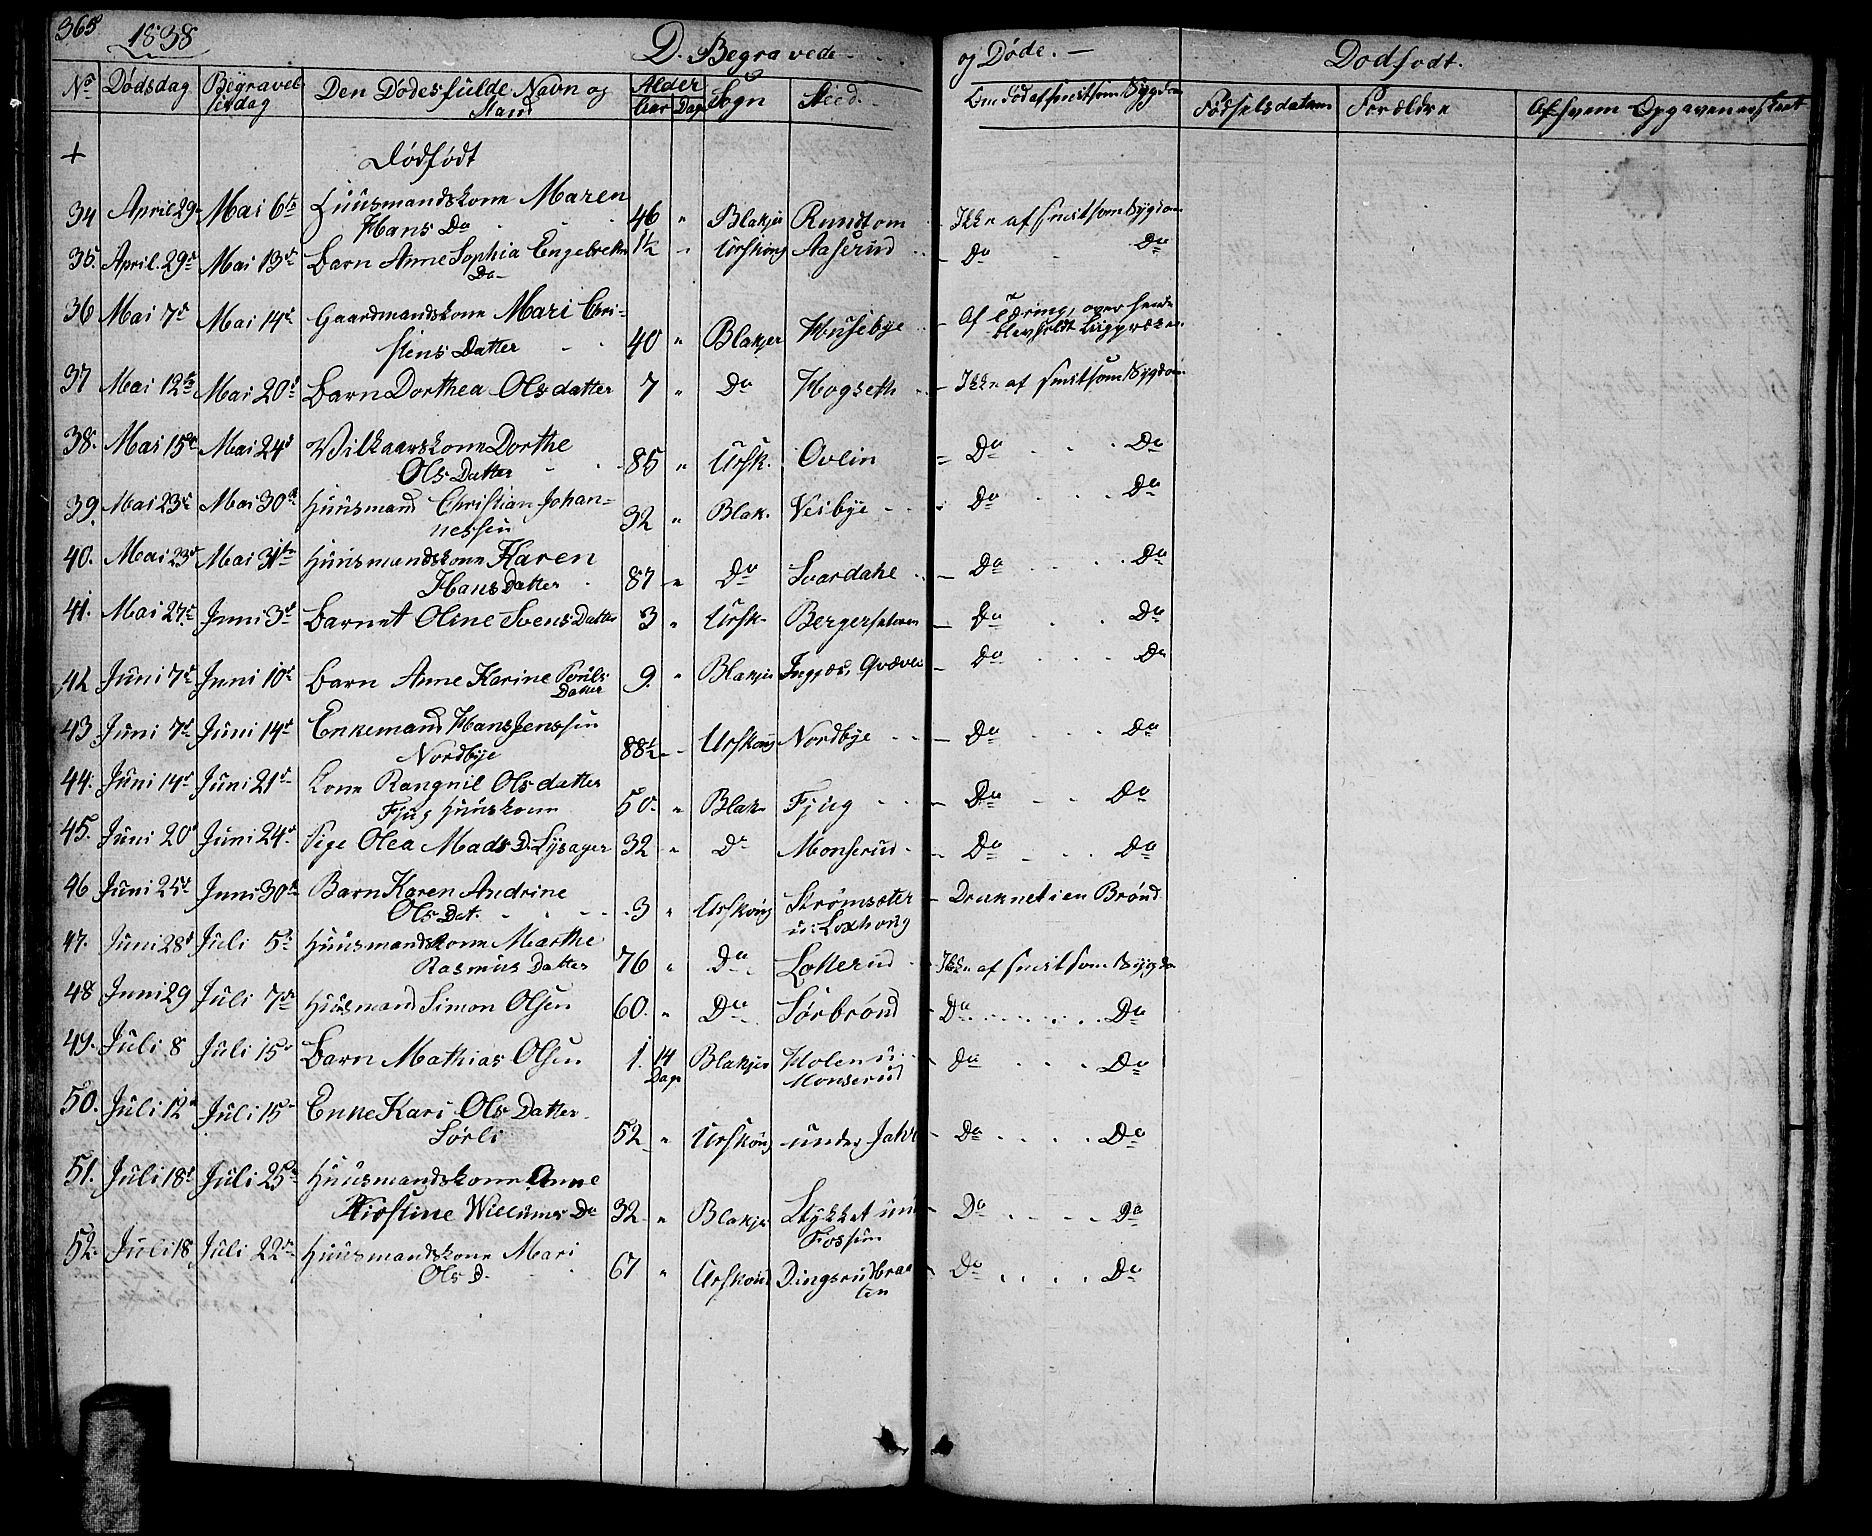 365 1838 D. Begravede og Døde. — Dødfødt.
No Dødsdag Begravelsesdag Den Dødes fulde Navn og Stand Alder Aar Dage Sogn Sted. Om Død af smitsom Sygdom Fødselsdatum Forældre Af hvem Opgaven er skeet
+ Dødfødt
34 April 29 Mai 6te Huusmandskone Maren Hans Da 46 " Blakjer Rundtom - Ikke af smitsom Sygdom
35. April. 29de Mai 13de Barn Anne Sophia Engebrets Da 1½ - Urskoug Aaserud - Do Do
36 Mai 7de Mai 14de Gaardmandskone Mari Christens Datter 40 " Blakjer Husebye - Af Tæring, over hende blev holdt Ligpræken
37 Mai 12te Mai 20de Barn Dorthea Olsdatter 7 " Do Hogseth - Ikke af smitsom Sygdom
38. Mai 15de Mai 24de Vilkaarskone Dorthe Ols Datter 85 " Ursk. Ovlin = Do Do
39. Mai 23de Mai 30te Huusmand Christian Johannessen 32 " Blak. Veibye - Do Do
40. Mai 23de Mai 31te Huusmandskone Karen Hans Datter 87 " Do Svardahl - Do Do
41. Mai 27de Juni 3de Barnet Oline Svens Datter 3 " Ursk. - Do Do
42 Juni 7de Juni 10de Barn Anne Karine Pouls Datter 9. " Blakjer - Do Do
43 Juni 7de Juni 14de Enkemand Hans Jenssen Nordbye 88½ - Urskoug Nordbye - Do Do
44. Juni 14de Juni 21de Kone Rangnil Olsdatter Fjug Huuskone 50. " Blak. Fjug - Do Do
45. Juni 20de Juni 24de Pige Olea Mads D. Lysager 32 " Do Monserud - Do Do
46 Juni 25de Juni 30te Barn Karen Andrine Ols Dat. 3 " Urskoug Strømsæter u: - Druknet i en Brønd
47. Juni 28de Juli 5te Huusmandskone Marthe Rasmus Datter 76 " Do Lotterud - Ikke af smitsom Sygdo
48 Juni 29 Juli 7de Huusmand Simon Olsen 60. " Do Sørbrønd - Do Do
49. Juli 8 Juli 15de Barn Mathias Olsen 1. 14 Dage Blakjer Holen u. Monserud - Do Do
50. Juli 12te Juli 15de Enke Kari Ols Datter Sørli 52 " Urskoug under - Do Do
51. Juli 18de Juli 25de Huusmandskone Anne Kirstine Willums Da 32 " Blakjer Stykket un Fossum - Do Do
52. Juli 18 Juli 22de Huusmandskone Mari Ols D. 67 " Urskoug Dingsrudbraaten - Do Do